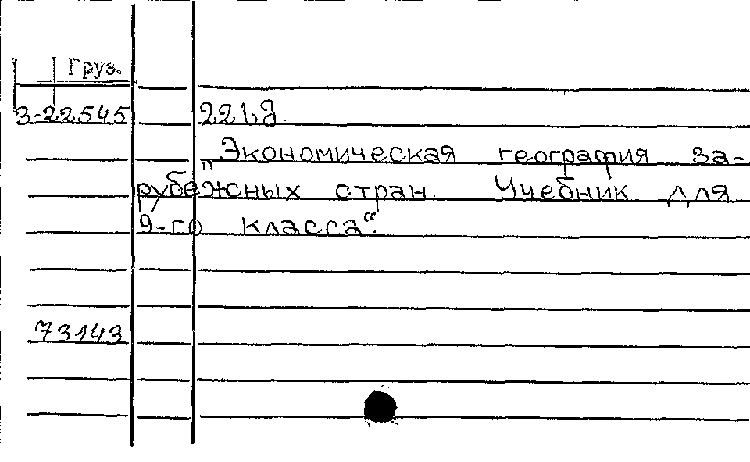 Груз.
3-22545 221,8
„Экономическая география за-
рубежных стран. Учебник для
9-го класса“.
73143